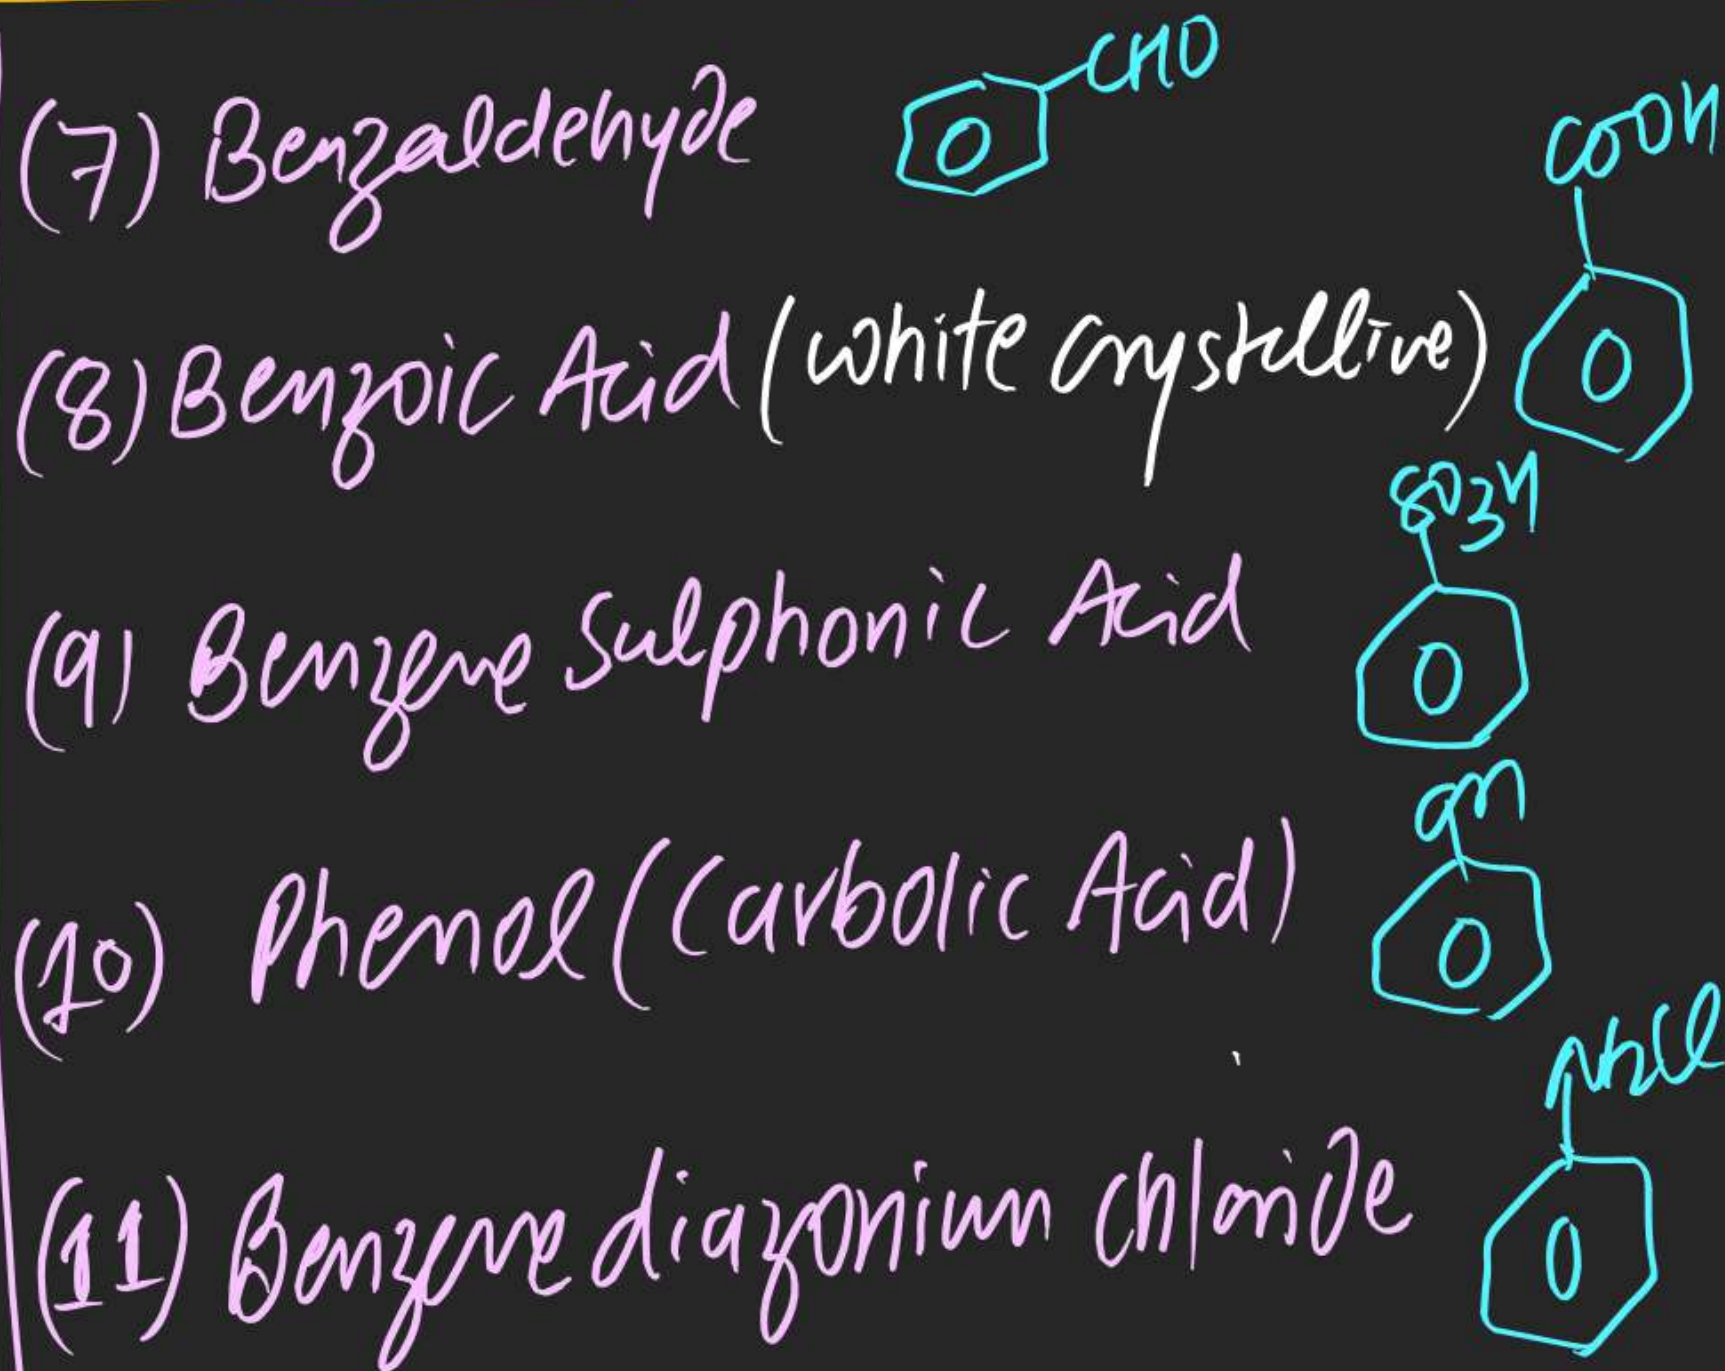 (7) Benzaldehyde CHO
COOH
(8) Benzoic Acid (white crystalline)
SO3H
(9) Benzene Sulphonic Acid
OH
(10) Phenol (Carbolic Acid)
N2Cl
(11) Benzene diazonium chloride